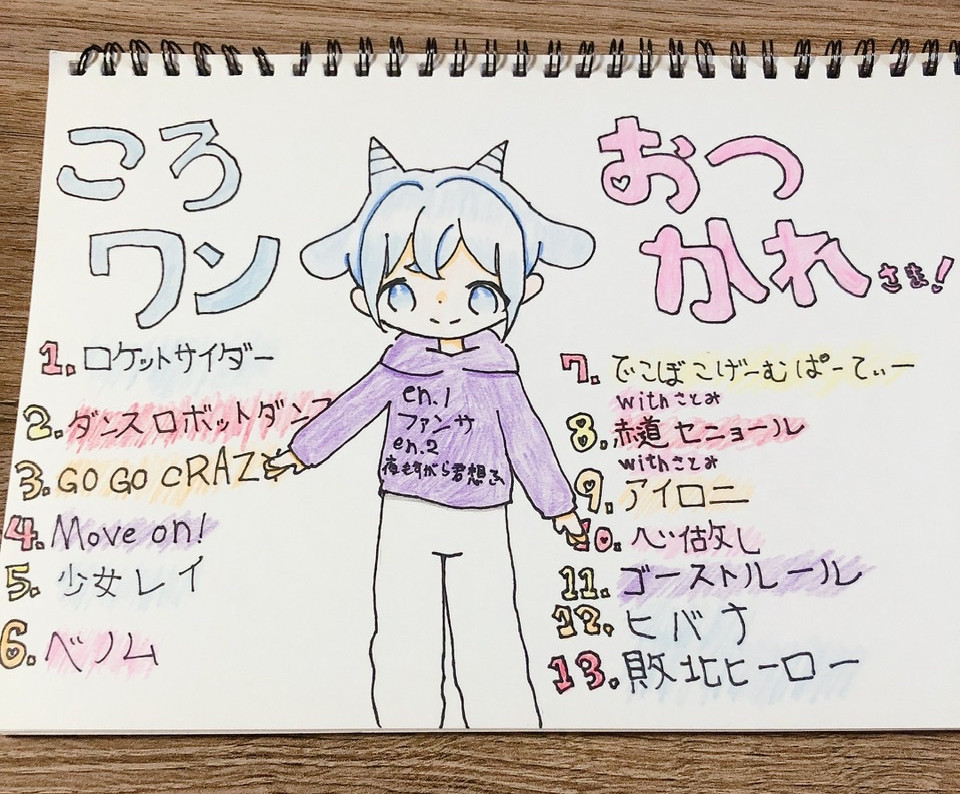 ころ
ワン
おつ
かれ さま!
1. ロケットサイダー
2. ダンスロボットダンス
3. GO GO CRAZY
4. Move on!
5. 少女レイ
6. ベノム
en.1
ファンサ
en.2
夜もすがら君想ふ
7. でこぼこげーむぱーてぃー
withさとみ
8. 赤道セニョール
withさとみ
9. アイロニ
10. 心拈攵し
11. ゴーストルール
12. ヒバナ
13. 敗北ヒーロー